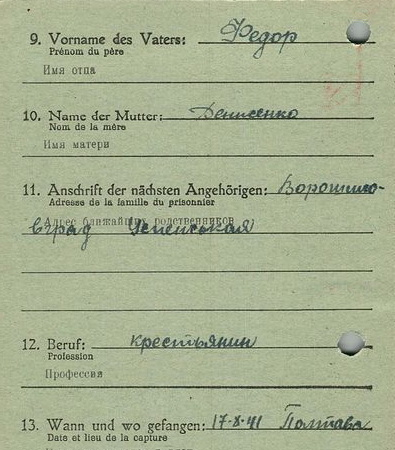 9. Vorname des Vaters: Федор
Prénom du père
Имя отца
10. Name der Mutter: Денисенко
Nom de la mère
Имя матери
11. Anschrift der nächsten Angehörigen: Ворошило-
Adresse de la famille du prisonnier
Адрес ближайших родственников
вград Успенськая
12. Beruf: крестьянин
Profession
Профессия
13. Wann und wo gefangen: 17-8-41 Полтава
Date et lieu de la capture